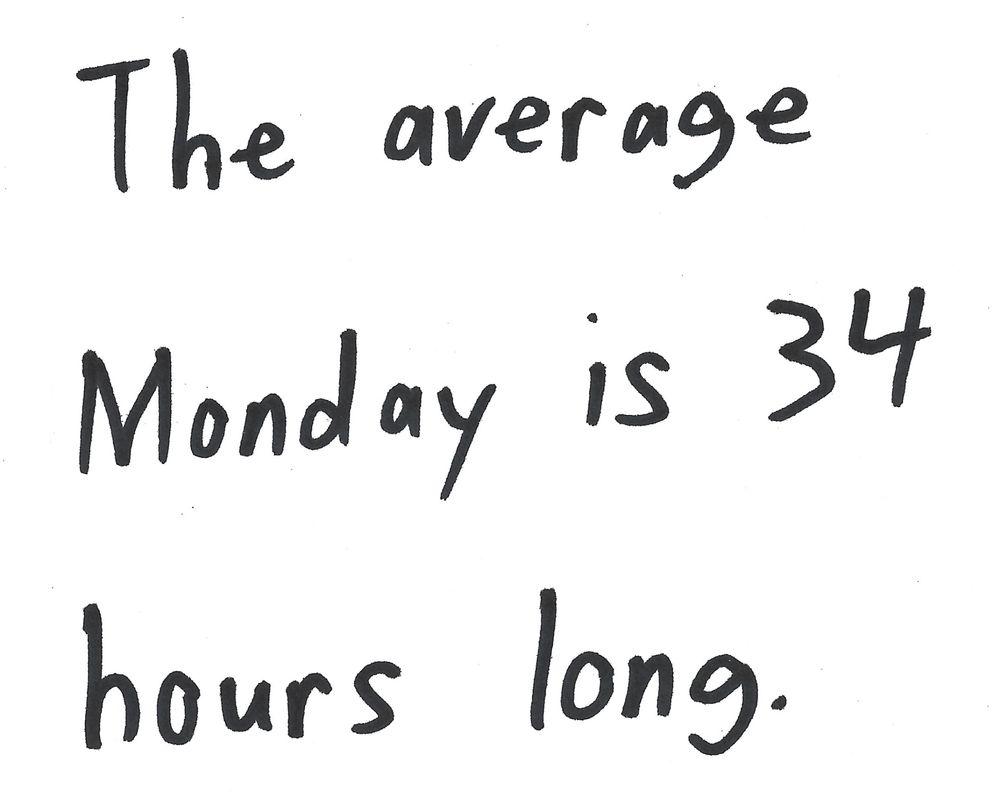 The average
Monday is 34
hours long.